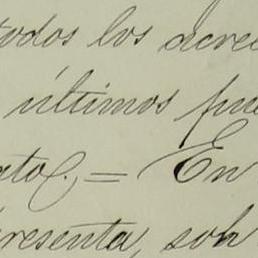 todos los acree
últimos pue
ato. = En
presenta, sob